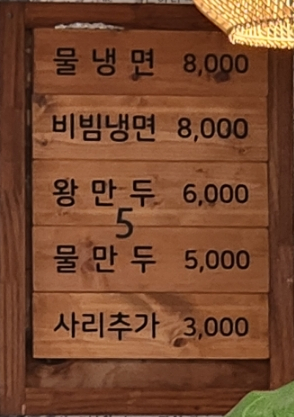 물냉면 8,000
비빔냉면 8,000
왕만두 6,000
5
물만두 5,000
사리추가 3,000